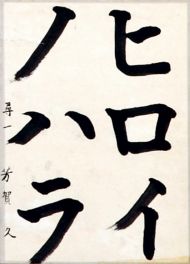 ヒロイ
ノハラ
尋一 芳賀久